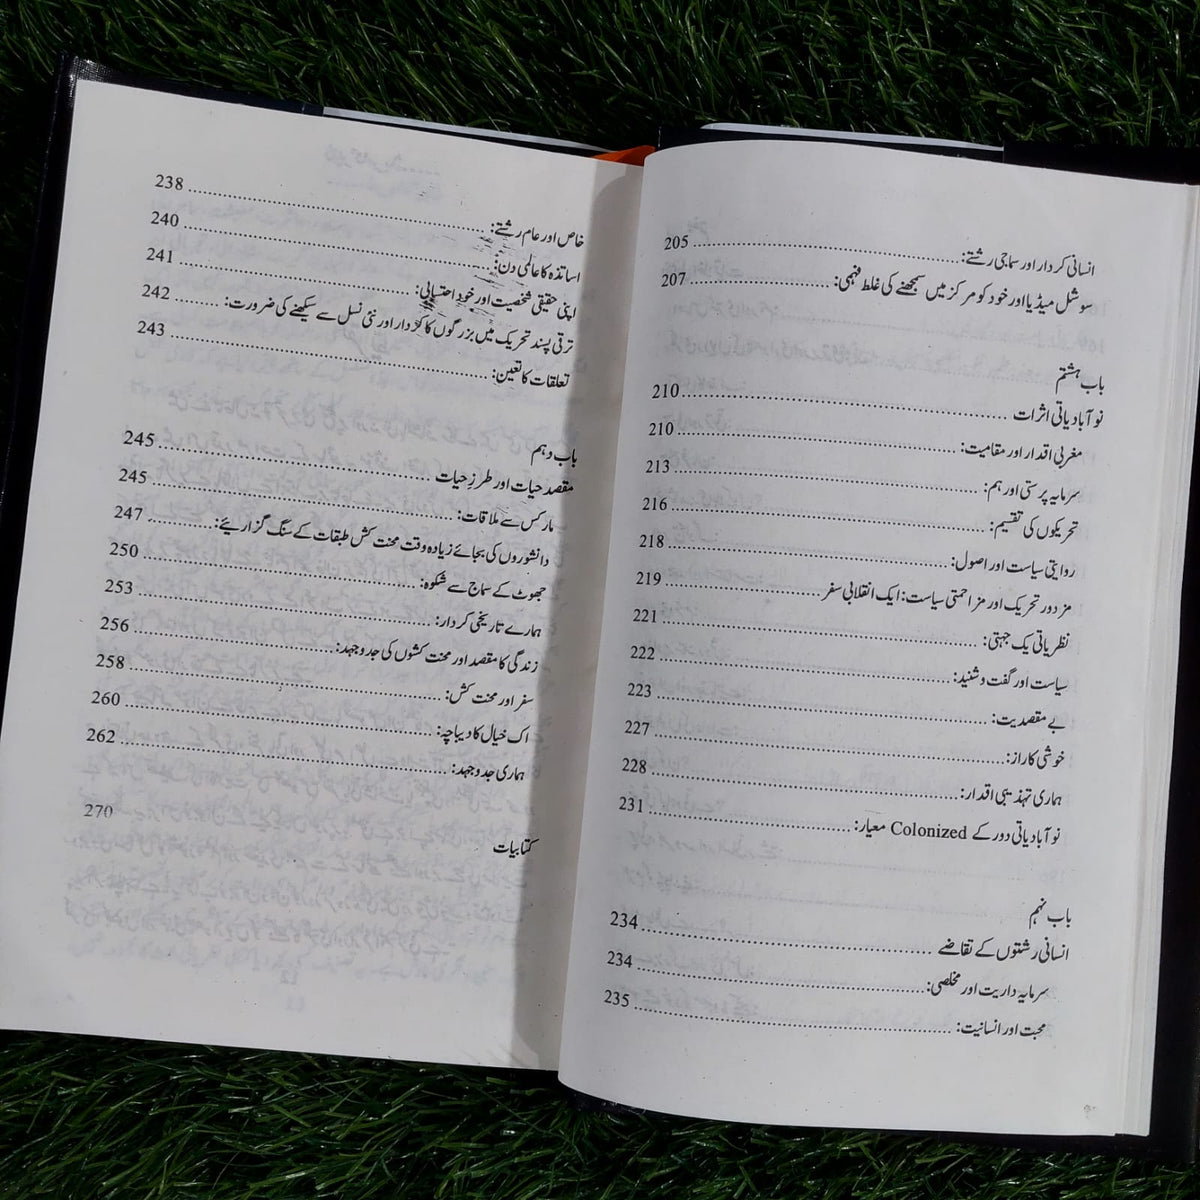 انسانی کردار اور سماجی رشتے: 205
سوشل میڈیا اور خود کو مرکز میں سمجھنے کی غلط فہمی: 207
باب ہشتم
نو آبادیاتی اثرات 210
مغربی اقدار اور مقامیت: 210
سرمایہ پرستی اور ہم: 213
تحریکوں کی تقسیم: 216
روایتی سیاست اور اصول: 218
مزدور تحریک اور مزاحمتی سیاست: ایک انقلابی سفر 219
نظریاتی یک جہتی: 221
سیاست اور گفت و شنید: 222
بے مقصدیت: 223
خوشی کا راز: 227
ہماری تہذیبی اقدار: 228
نو آبادیاتی دور کے Colonized معیار: 231
باب نہم
انسانی رشتوں کے تقاضے 234
سرمایہ داریت اور مخلصی: 234
محبت اور انسانیت: 235
خاص اور عام رشتے: 238
اساتذہ کا عالمی دن: 240
اپنی حقیقی شخصیت اور خود احتسابی: 241
ترقی پسند تحریک میں بزرگوں کا کردار اور نئی نسل سے سیکھنے کی ضرورت: 242
تعلقات کا تعین: 243
باب دہم
مقصد حیات اور طرز حیات 245
مارکس سے ملاقات: 245
دانشوروں کی بجائے زیادہ وقت محنت کش طبقات کے سنگ گزاریئے: 247
جھوٹ کے سماج سے شکوہ: 250
ہمارے تاریخی کردار: 253
زندگی کا مقصد اور محنت کشوں کی جدوجہد: 256
سفر اور محنت کش: 258
اک خیال کا دیباچہ: 260
ہماری جدوجہد: 262
کتابیات 270